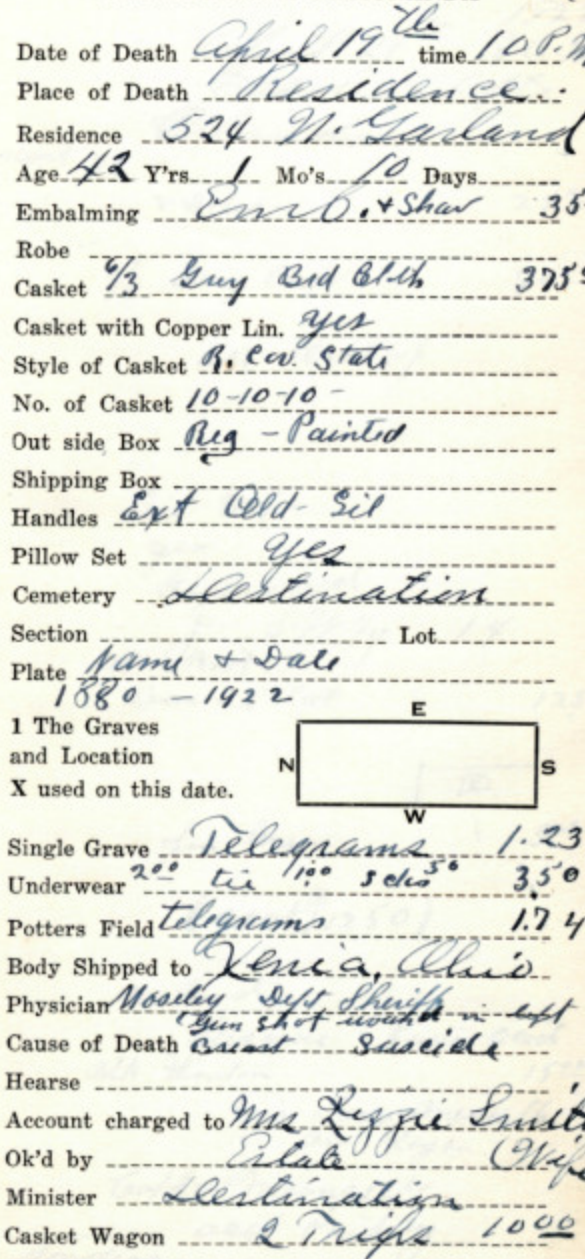 Date of Death April 19th time 10 P.M
Place of Death Residence
Residence 524 N. Garland
Age 42 Y'rs 1 Mo's 10 Days
Embalming Emb. + Shav 35
Robe
Casket 6/3 Grey Brd Cloth 375
Casket with Copper Lin. yes
Style of Casket State
No. of Casket 10-10-10-
Out side Box Reg - Painted
Shipping Box
Handles Ext Old- Sil
Pillow Set yes
Cemetery Destination
Section Lot
Plate Name + Date
1880 - 1922
E
1 The Graves
and Location
N S
X used on this date.
W
Single Grave Telegrams 1.23
Underwear 2.00 tie 1.00 50 3.50
Potters Field telegrams 1.74
Body Shipped to Xenia, Ohio
Physician Moseley Dept Sheriff
Gun shot wound in left
Cause of Death Breast Suscide
Hearse
Account charged to Mrs Lizzie Smith
Ok'd by Estate (Wife
Minister Destination
Casket Wagon 2 Trips 10 00